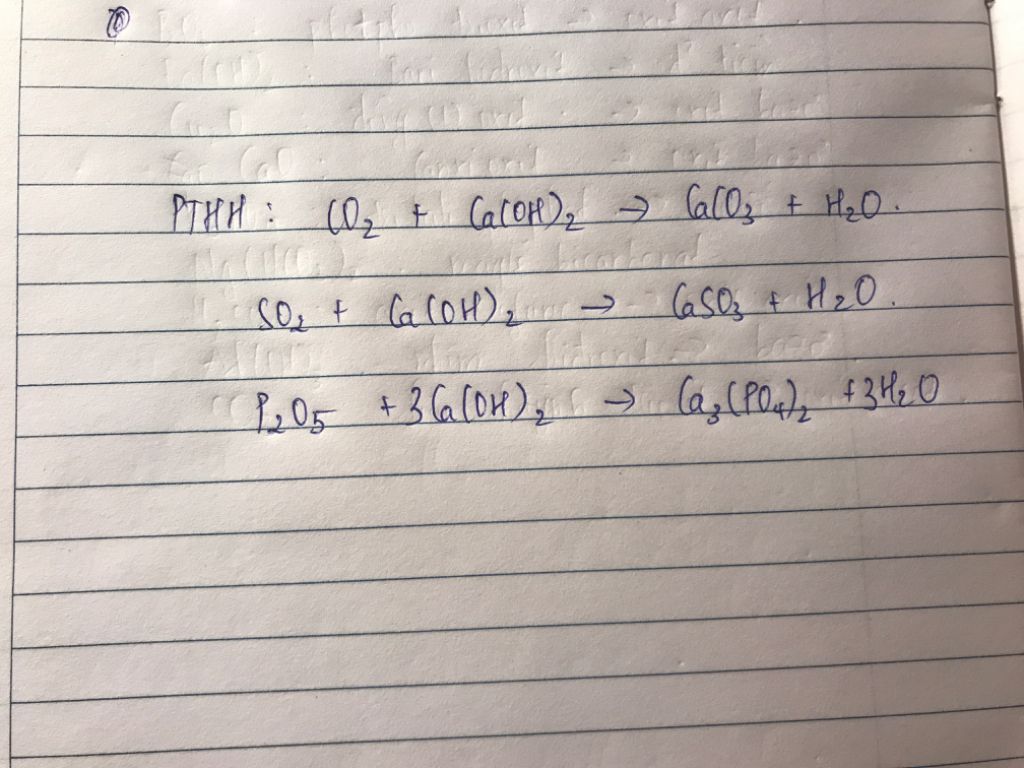 PTHH: CO2 + Ca(OH)2 → CaCO3 + H2O.
SO2 + Ca(OH)2 → CaSO3 + H2O.
P2O5 + 3Ca(OH)2 → Ca3(PO4)2 + 3H2O